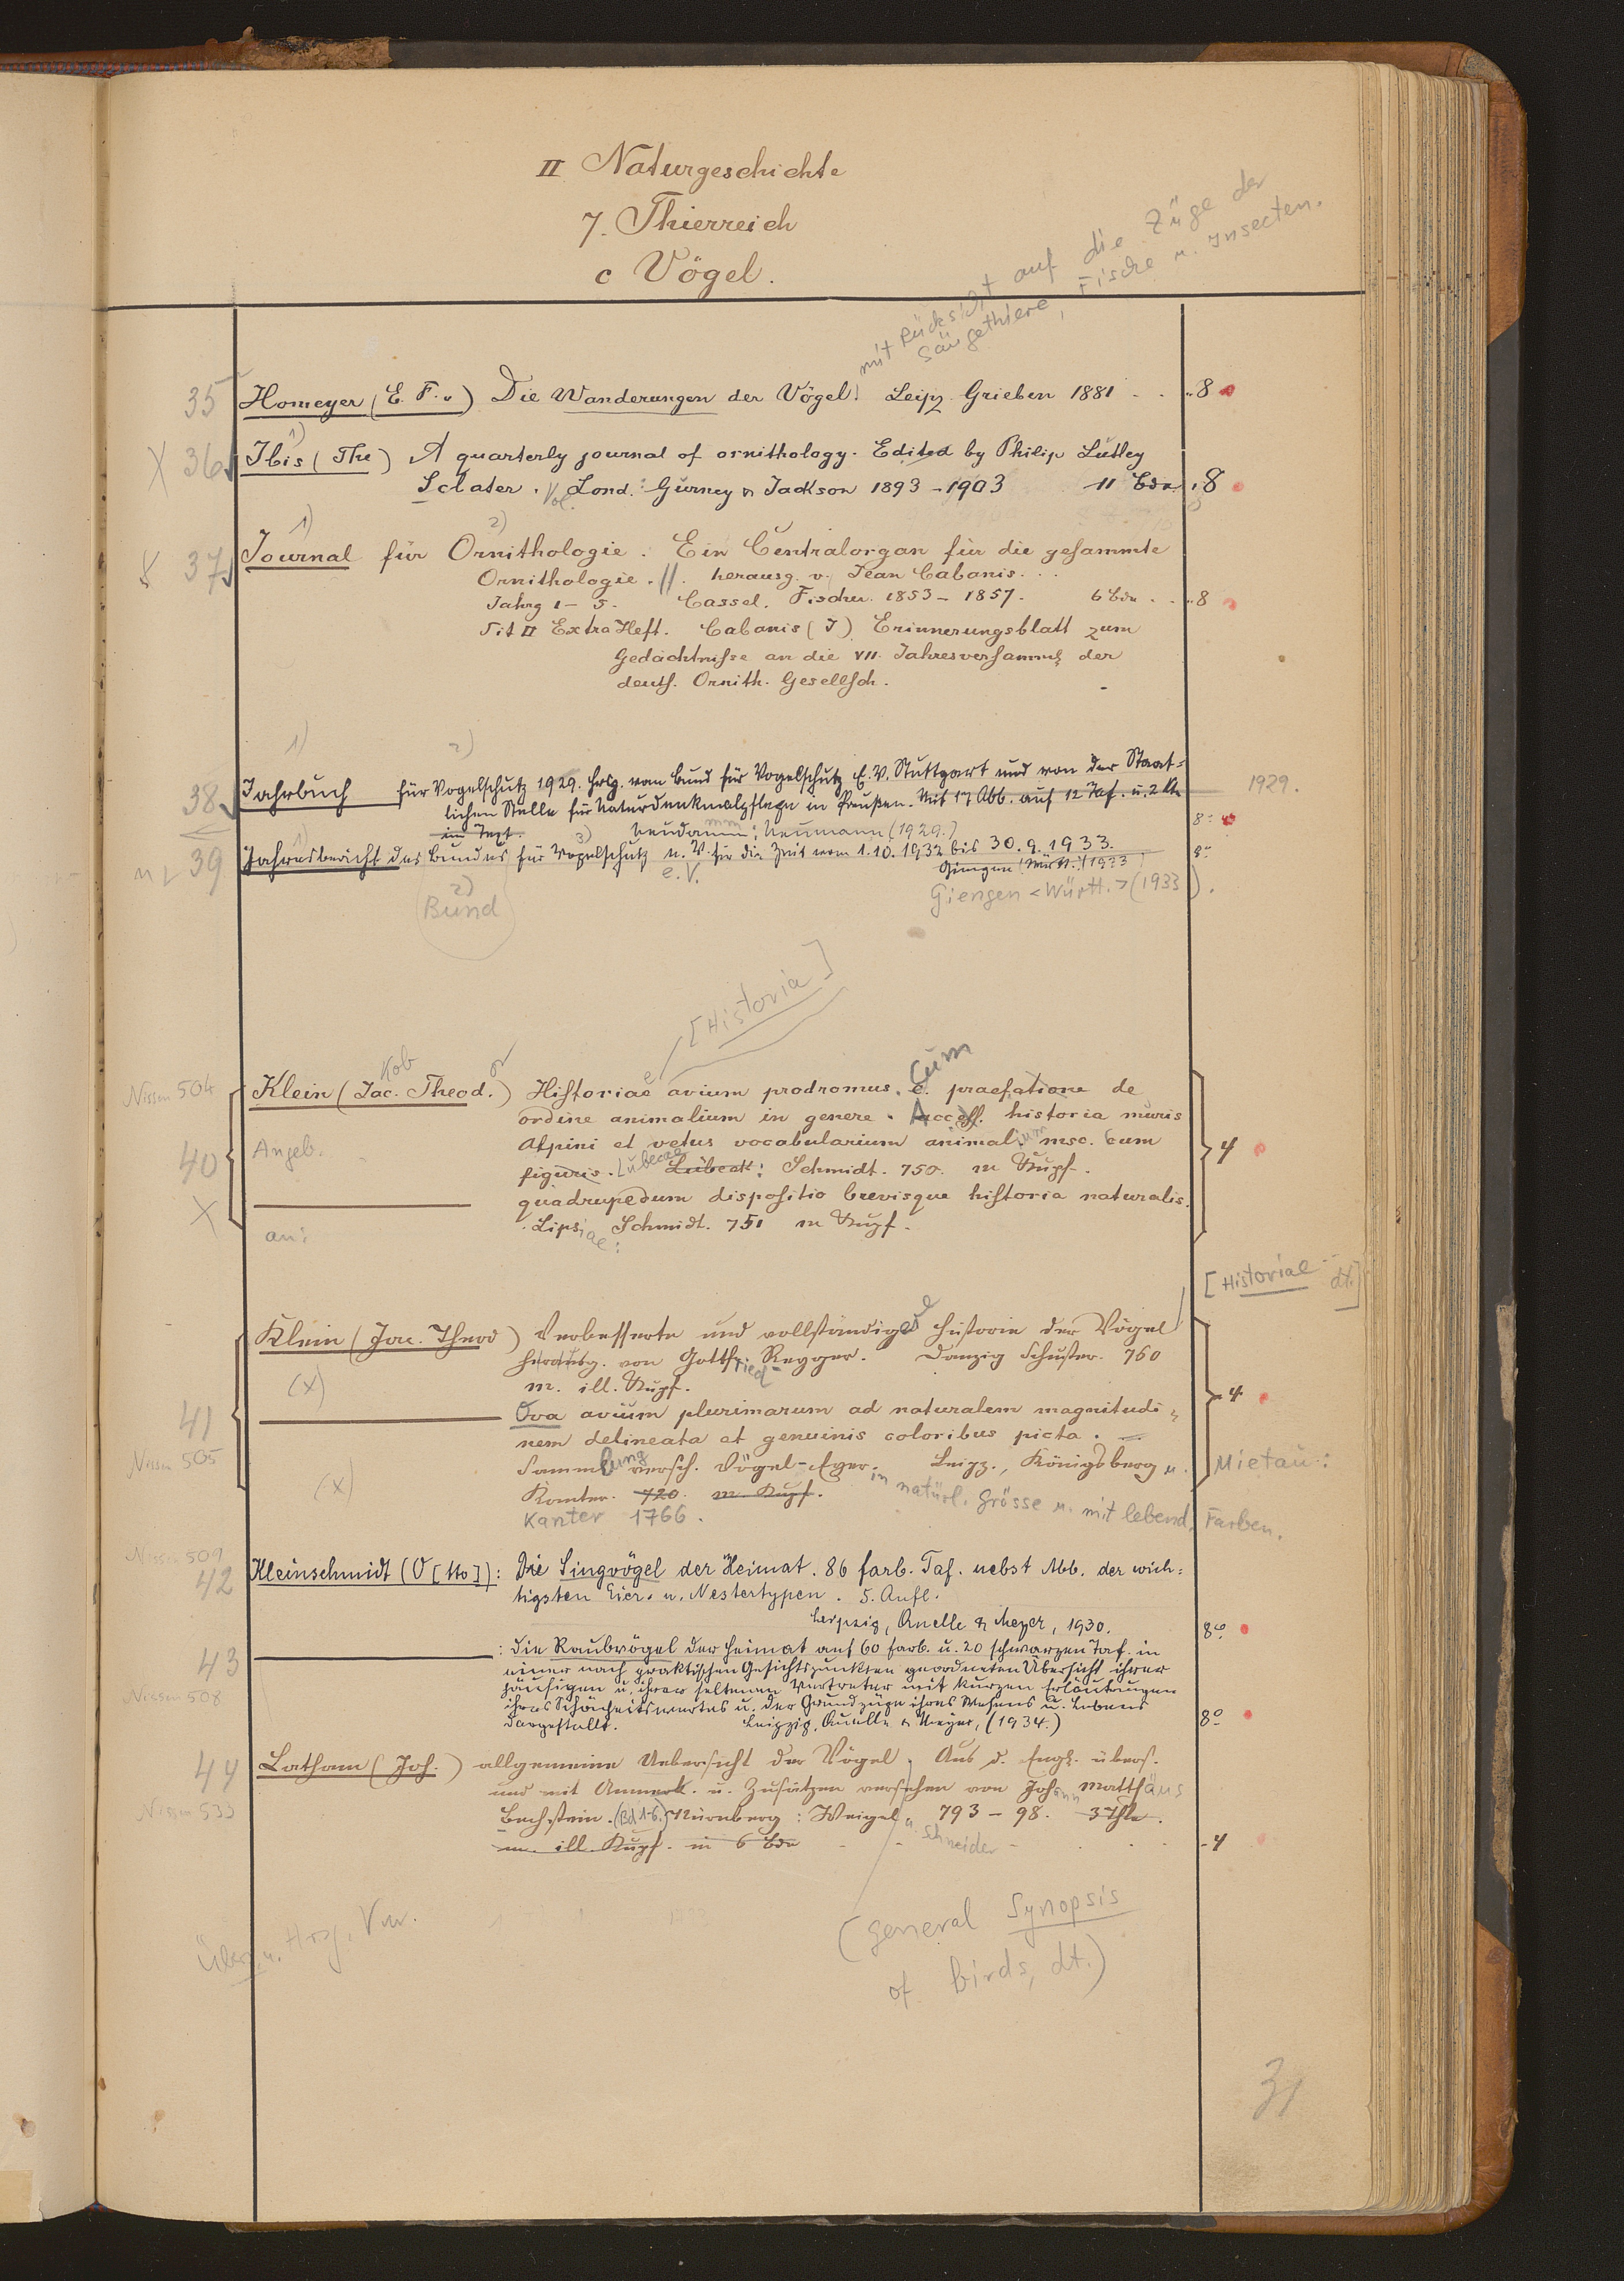 II Naturgeschichte
7. Thierreich
c Vögel.
mit Rücksicht auf die Züge der
Säugethiere, Fische u. Insecten.
35 Homeyer (E. F. v) Die Wanderungen der Vögel. Leipz. Grieben 1881 . . 8
1)
X 36 Ibis (The) A quarterly journal of ornithology. Edited by Philip Lutley
Sclater. Vol. Lond.: Gurney & Jackson 1893-1903 11 Bde. 8
1) 2)
X 37 Journal für Ornithologie. Ein Centralorgan für die gesammte
Ornithologie. // herausg. v. Jean Cabanis. . .
Jahrg 1-5. Cassel. Fischer. 1853-1857. 6 Bde . . 8
Mit II Extra Heft. Cabanis (J) Erinnerungsblatt zum
Gedächtnisse an die VII. Jahresversamml der
deuts. Ornith. Gesellsch.
1) 2)
38 Jahrbuch für Vogelschutz 1929. Hrsg. vom Bund für Vogelschutz E.V. Stuttgart und von der Staat-
lichen Stelle für Naturdenkmalpflege in Preußen. Mit 17 Abb. auf 12 Taf. u. 2 
im Text. Neudamm: Neumann (1929.) 8°
1929.
1) 3)
39 Jahresbericht des Bundes für Vogelschutz e. V. für die Zeit vom 1.10.1932 bis 30.9.1933. 8°
e.V. Giengen (Württ.) (1933)
2) Giengen <Württ.> (1933).
(Bund)
[Historia]
Nissen 504 Klein (Jac. Theod.) Historiae avium prodromus. c. cum praefatione de
kob or
ordine animalium in genere. Access. historia muris
Angeb. Alpini et vetus vocabularium animal.ium msc. cum
40 figuris. Lubecae Lübeck: Schmidt. 750. m Kupf. 4
X quadrupedum dispositio brevisque historia naturalis.
an: Lipsiae: Schmidt. 751 m Kupf.
[Historiae dt.]
Klein (Jac. Theod) Verbesserte und vollständigere Historie der Vögel
herausg. von Gottfried Reyger. Danzig Schuster. 760
(x) m. ill. Kupf. 4
41 Ova avium plurimarum ad naturalem magnitudi-
nem delineata et genuinis coloribus picta.
Nissen 505 Sammlung versch. Vögel-Eyer. Leipz., Königsberg u. Mietau:
in natürl. Grösse u. mit lebend. Farben.
(x) Kanter. 720. m. Kupf.
Kanter 1766.
Nissen 509
42 Kleinschmidt (O[tto]): Die Singvögel der Heimat. 86 farb. Taf. nebst Abb. der wich-
tigsten Eier- u. Nestertypen. 5. Aufl.
Leipzig, Quelle & Meyer, 1930. 8°
43 : Die Raubvögel der Heimat auf 60 farb. u. 20 schwarzen Taf. in
einer nach praktischen Gesichtspunkten geordneten Übersicht ihrer
Nissen 508 häufigen u. ihrer seltenen Vertreter mit kurzen Erläuterungen
ihres Schönheitswertes u. der Grundzüge ihres Wesens u. Lebens
dargestellt. Leipzig, Quelle & Meyer, (1934.) 8°
44 Latham (Joh.) allgemeine Uebersicht der Vögel. Aus d. Engl. übers.
und mit Anmerk. u. Zusätzen versehen von Johann Matthäus
Nissen 533 Bechstein. (Bd 1-6.) Nürnberg: Weigel u. Schneider 793-98. 3 Thle.
m. ill. Kupf. in 6 Bde - 4
Übers. u. Hrsg. Vw.
(General Synopsis
of birds, dt.)
31